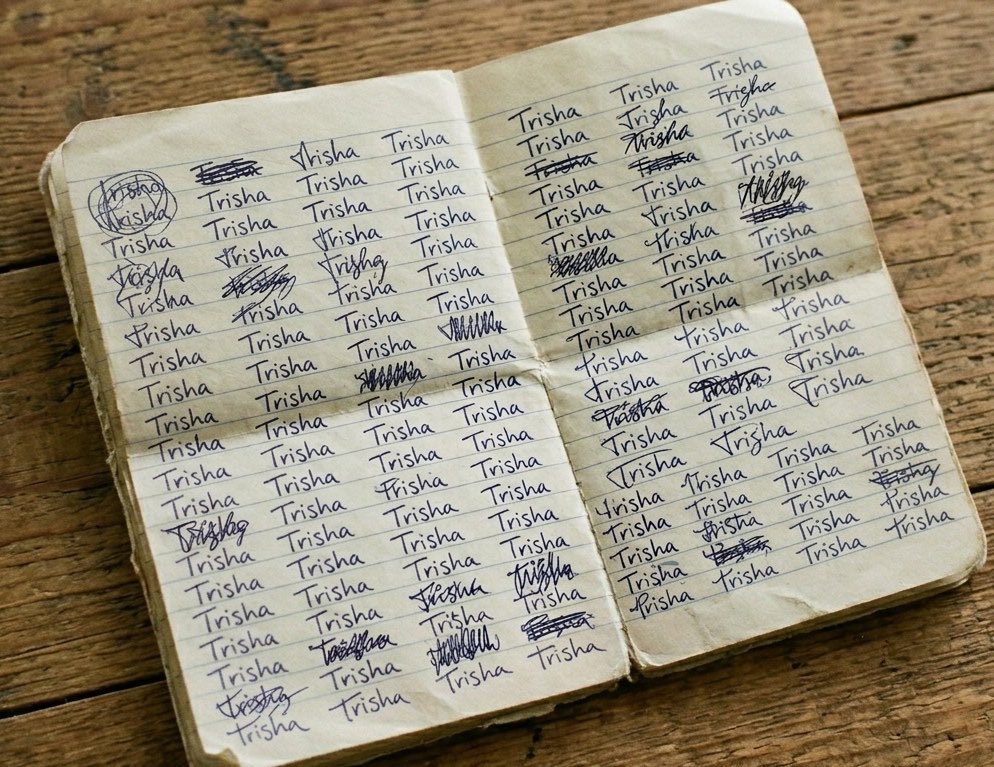 Trisha Trisha Trisha
Trisha Trisha Trisha Trisha
Trisha Trisha Trisha Trisha
Trisha Trisha Trisha Trisha
Trisha Trisha Trisha
Trisha Trisha Trisha Trisha
Trisha Trisha Trisha Trisha
Trisha Trisha Trisha
Trisha Trisha Trisha
Trisha Trisha Trisha Trisha
Trisha Trisha Trisha Trisha
Trisha Trisha Trisha Trisha
Trisha Trisha Trisha Trisha
Trisha Trisha Trisha Trisha
Trisha Trisha Trisha Trisha
Trisha Trisha Trisha Trisha
Trisha Trisha Trisha Trisha
Trisha Trisha Trisha
Trisha
Trisha Trisha Trisha Trisha
Trisha Trisha Trisha
Trisha Trisha Trisha
Trisha Trisha Trisha
Trisha Trisha
Trisha Trisha Trisha
Trisha Trisha
Trisha
Trisha Trisha Trisha
Trisha Trisha Trisha
Trisha Trisha Trisha
Trisha Trisha Trisha
Trisha Trisha Trisha
Trisha Trisha
Trisha Trisha Trisha
Trisha Trisha
Trisha Trisha Trisha Trisha
Trisha Trisha Trisha Trisha
Trisha Trisha Trisha Trisha
Trisha Trisha Trisha
Trisha Trisha Trisha Trisha